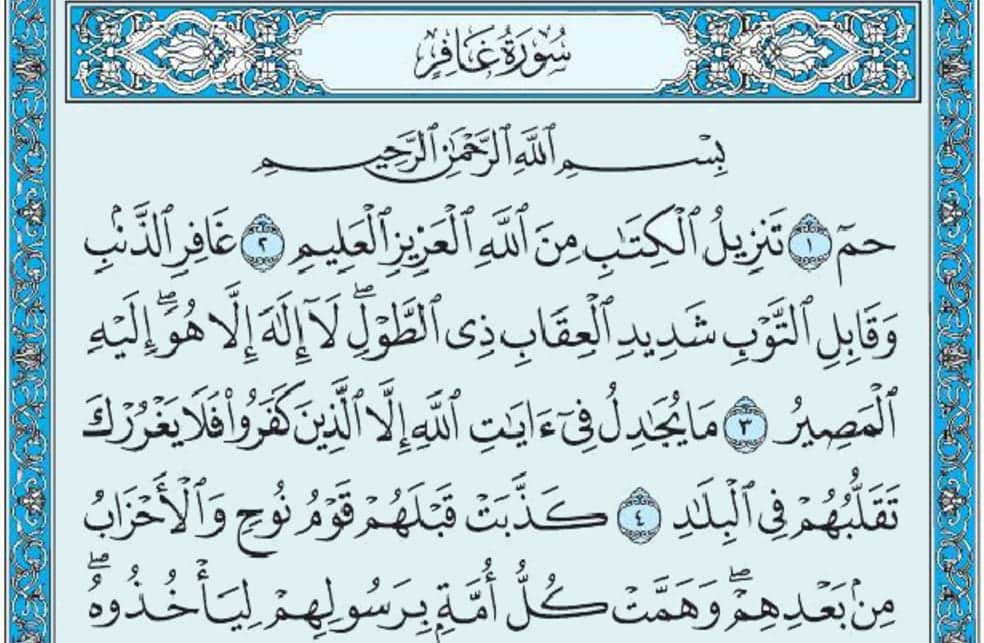 سُورَةُ غَافِرٍ
بِسْمِ ٱللَّهِ ٱلرَّحْمَٰنِ ٱلرَّحِيمِ
حمٓ ١ تَنزِيلُ ٱلْكِتَٰبِ مِنَ ٱللَّهِ ٱلْعَزِيزِ ٱلْعَلِيمِ ٢ غَافِرِ ٱلذَّنۢبِ
وَقَابِلِ ٱلتَّوْبِ شَدِيدِ ٱلْعِقَابِ ذِى ٱلطَّوْلِۖ لَآ إِلَٰهَ إِلَّا هُوَۖ إِلَيْهِ
ٱلْمَصِيرُ ٣ مَا يُجَٰدِلُ فِىٓ ءَايَٰتِ ٱللَّهِ إِلَّا ٱلَّذِينَ كَفَرُوا۟ فَلَا يَغْرُرْكَ
تَقَلُّبُهُمْ فِى ٱلْبِلَٰدِ ٤ كَذَّبَتْ قَبْلَهُمْ قَوْمُ نُوحٍ وَٱلْأَحْزَابُ
مِنۢ بَعْدِهِمْۖ وَهَمَّتْ كُلُّ أُمَّةٍۭ بِرَسُولِهِمْ لِيَأْخُذُوهُۖ